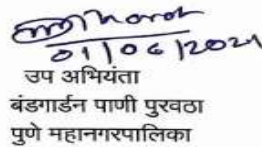 01/06/2021
उप अभियंता
बंडगार्डन पाणी पुरवठा
पुणे महानगरपालिका